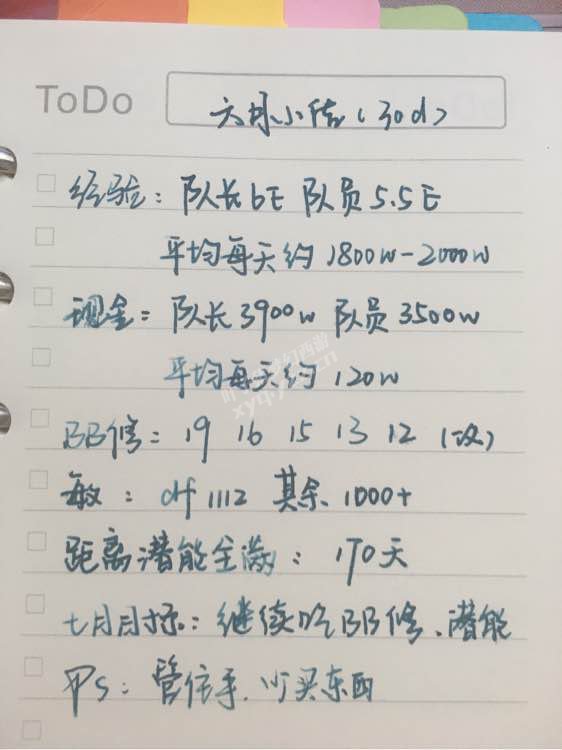 ToDo
六月小结(30d)
经验：队长6E 队员5.5E
平均每天约1800w-2000w
现金：队长3900w 队员3500w
平均每天约120w
BB修：19 16 15 13 12 (攻)
敏：df 1112 其余1000+
距离潜能全满：170天
七月目标：继续吃BB修、潜能
PS：管住手,少买东西